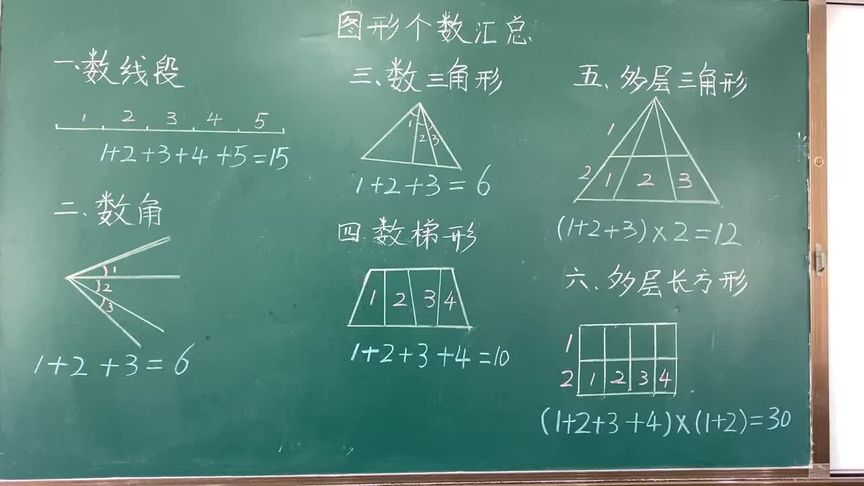 图形个数汇总
一、数线段
1 2 3 4 5
1+2+3+4+5=15
二、数角
1
2
3
1+2+3=6
三、数三角形
1 2 3
1+2+3=6
四、数梯形
1 2 3 4
1+2+3+4=10
五、多层三角形
1
2 1 2 3
(1+2+3)×2=12
六、多层长方形
1
2 1 2 3 4
(1+2+3+4)×(1+2)=30